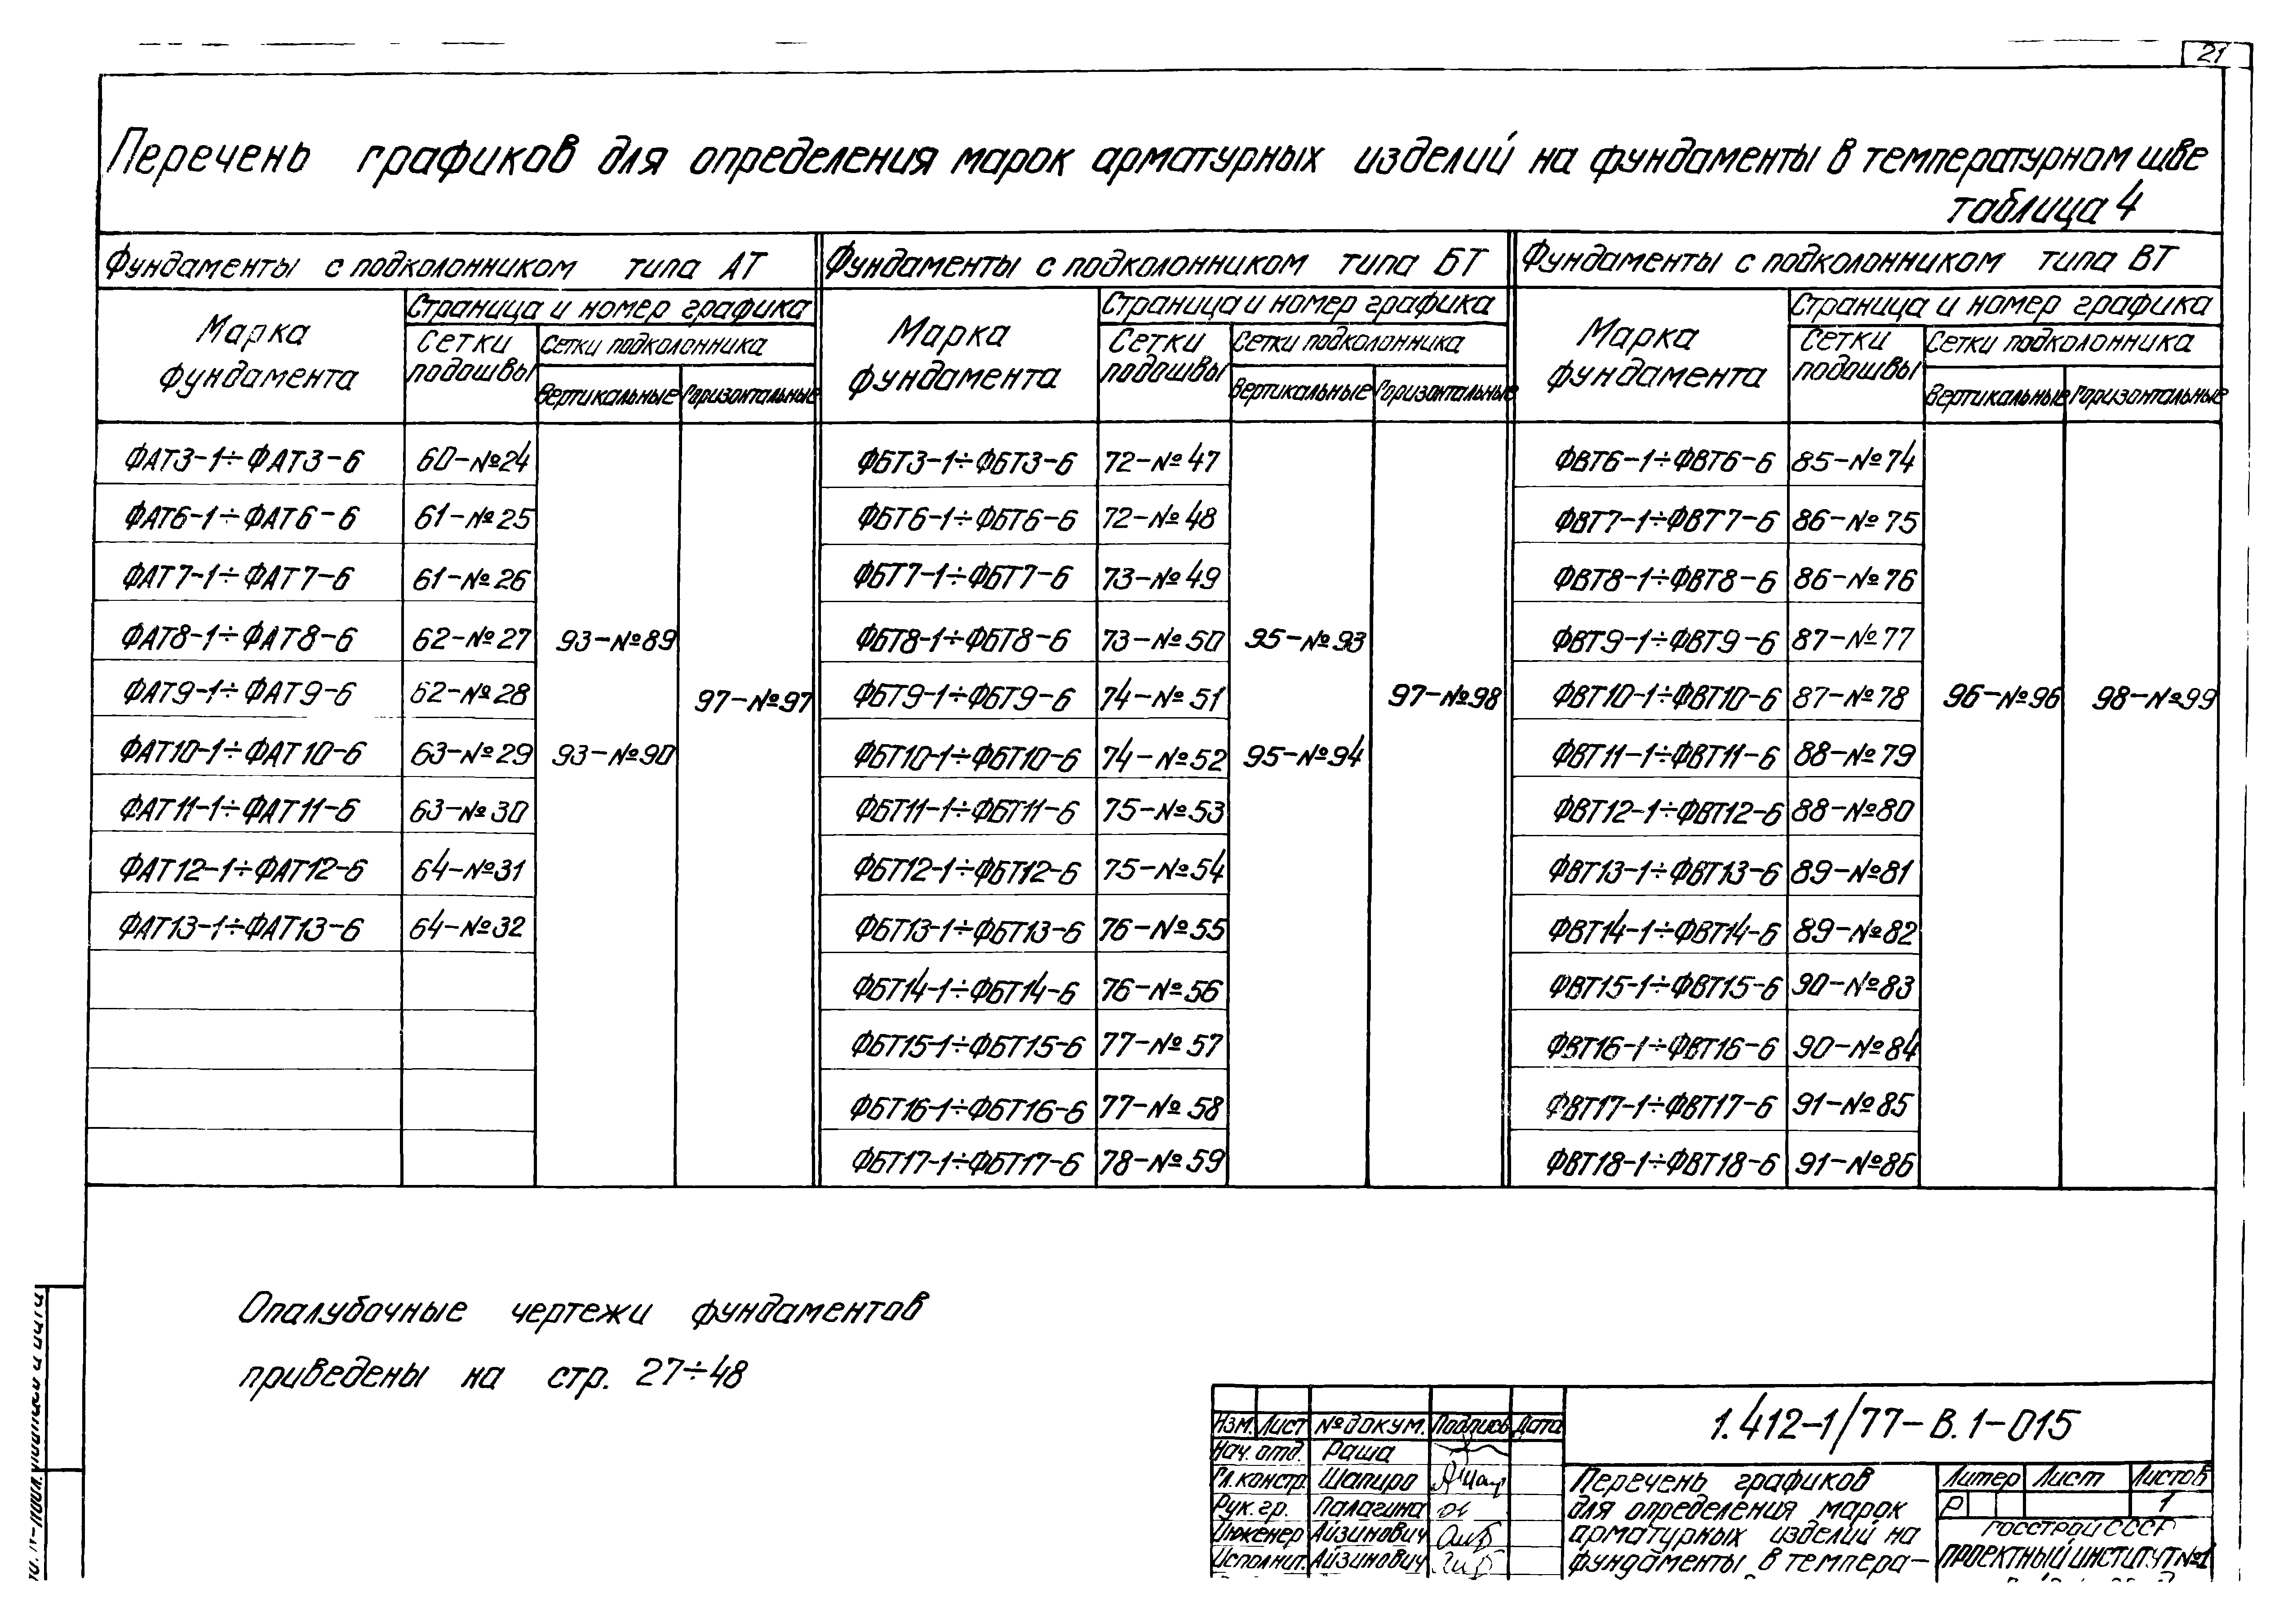 21
Перечень графиков для определения марок арматурных изделий на фундаменты в температурном шве
таблица 4
Фундаменты с подколонником типа АТ
Марка фундамента
Страница и номер графика
Сетки подошвы
Сетки подколонника
Вертикальные Горизонтальные
ФАТ3-1÷ФАТ3-6 60-№24
ФАТ6-1÷ФАТ6-6 61-№25
ФАТ7-1÷ФАТ7-6 61-№26
ФАТ8-1÷ФАТ8-6 62-№27 93-№89
ФАТ9-1÷ФАТ9-6 62-№28
97-№97
ФАТ10-1÷ФАТ10-6 63-№29 93-№90
ФАТ11-1÷ФАТ11-6 63-№30
ФАТ12-1÷ФАТ12-6 64-№31
ФАТ13-1÷ФАТ13-6 64-№32
Фундаменты с подколонником типа БТ
Марка фундамента
Страница и номер графика
Сетки подошвы
Сетки подколонника
Вертикальные Горизонтальные
ФБТ3-1÷ФБТ3-6 72-№47
ФБТ6-1÷ФБТ6-6 72-№48
ФБТ7-1÷ФБТ7-6 73-№49
ФБТ8-1÷ФБТ8-6 73-№50 95-№93
ФБТ9-1÷ФБТ9-6 74-№51 97-№98
ФБТ10-1÷ФБТ10-6 74-№52 95-№94
ФБТ11-1÷ФБТ11-6 75-№53
ФБТ12-1÷ФБТ12-6 75-№54
ФБТ13-1÷ФБТ13-6 76-№55
ФБТ14-1÷ФБТ14-6 76-№56
ФБТ15-1÷ФБТ15-6 77-№57
ФБТ16-1÷ФБТ16-6 77-№58
ФБТ17-1÷ФБТ17-6 78-№59
Фундаменты с подколонником типа ВТ
Марка фундамента
Страница и номер графика
Сетки подошвы
Сетки подколонника
Вертикальные Горизонтальные
ФВТ6-1÷ФВТ6-6 85-№74
ФВТ7-1÷ФВТ7-6 86-№75
ФВТ8-1÷ФВТ8-6 86-№76
ФВТ9-1÷ФВТ9-6 87-№77
ФВТ10-1÷ФВТ10-6 87-№78 96-№96 98-№99
ФВТ11-1÷ФВТ11-6 88-№79
ФВТ12-1÷ФВТ12-6 88-№80
ФВТ13-1÷ФВТ13-6 89-№81
ФВТ14-1÷ФВТ14-6 89-№82
ФВТ15-1÷ФВТ15-6 90-№83
ФВТ16-1÷ФВТ16-6 90-№84
ФВТ17-1÷ФВТ17-6 91-№85
ФВТ18-1÷ФВТ18-6 91-№86
Опалубочные чертежи фундаментов
приведены на стр. 27÷48
Изм. Лист № докум. Подпись Дата
Нач. отд. Раша
Гл. констр. Шапиро
Рук. гр. Палагина
Инженер Айзинович
Исполнит. Айзинович
1.412-1/77-В.1-015
Перечень графиков
для определения марок
арматурных изделий на
фундаменты в темпера-
Литер Лист Листов
Р 1
Госстрой СССР
ПРОЕКТНЫЙ ИНСТИТУТ №1